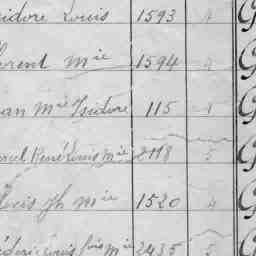 idore Louis 1593 4
lorent Mie 1594 4
ean Mie Isidore 115 4
arcel René Louis Mie 2118 5
lexis Jh Mie 1520 4
édéric Louis fois Mie 2435 5